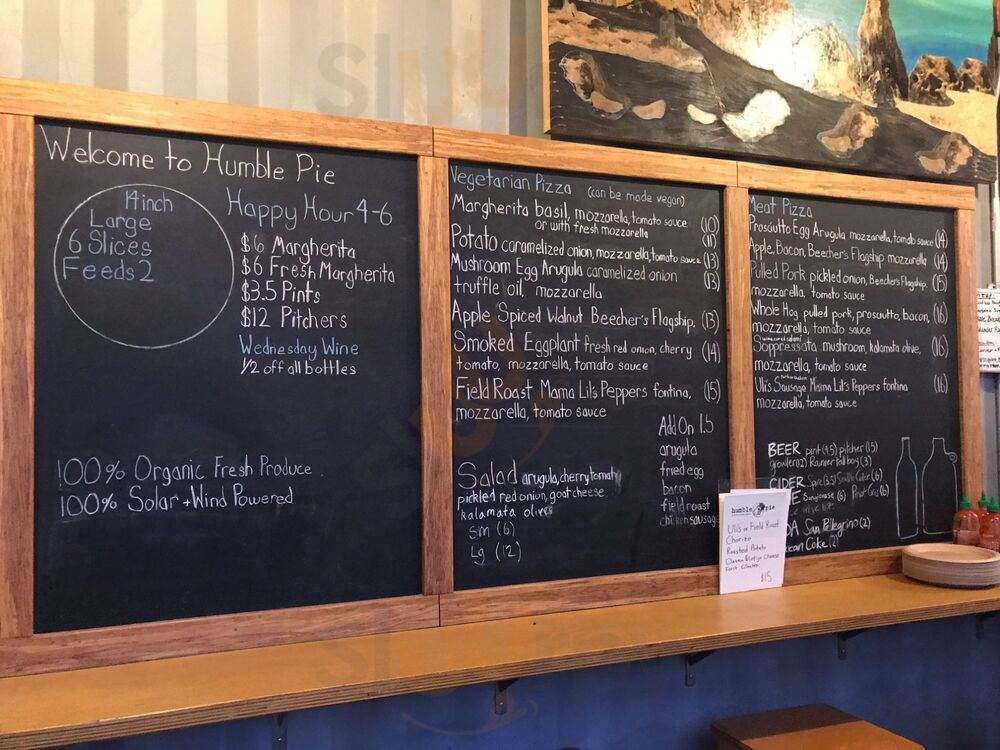 Welcome to Humble Pie
14 inch
Large
6 Slices
Feeds 2
Happy Hour 4-6
$6 Margherita
$6 Fresh Margherita
$3.5 Pints
$12 Pitchers
Wednesday Wine
1/2 off all bottles
100% Organic Fresh Produce
100% Solar + Wind Powered
Vegetarian Pizza (can be made vegan)
Margherita basil, mozzarella, tomato sauce (10)
or with fresh mozzarella (11)
Potato caramelized onion, mozzarella, tomato sauce (13)
Mushroom Egg Arugula caramelized onion (13)
truffle oil, mozzarella
Apple Spiced Walnut Beecher's Flagship. (13)
Smoked Eggplant fresh red onion, cherry (14)
tomato, mozzarella, tomato sauce
Field Roast Mama Lil's Peppers fontina, (15)
mozzarella, tomato sauce
Add On 1.5
arugula
fried egg
bacon
field roast
chicken sausage
Salad arugula, cherry tomato
pickled red onion, goat cheese
kalamata olives
sm (6)
Lg (12)
Meat Pizza
Prosciutto Egg Arugula mozzarella, tomato sauce (14)
Apple, Bacon, Beecher's Flagship mozzarella (14)
Pulled Pork pickled onion, Beecher's Flagship, (15)
mozzarella, tomato sauce
Whole Hog pulled pork, prosciutto, bacon, (16)
mozzarella, tomato sauce
Soppressata, mushroom, kalamata olive, (16)
mozzarella, tomato sauce
Uli's Sausage Mama Lil's Peppers fontina (16)
mozzarella, tomato sauce
BEER pint (4.5) pitcher (15)
growler (12) Rainier tall boy (3)
CIDER
Sangiovese (6) Pinot Gris (6)
DA San Pellegrino (2)
ican Coke (2)
humble pie
Uli's or Field Roast
Chorizo
Roasted Potato
Oaxaca & Cotija Cheese
Fresh Cilantro
$15